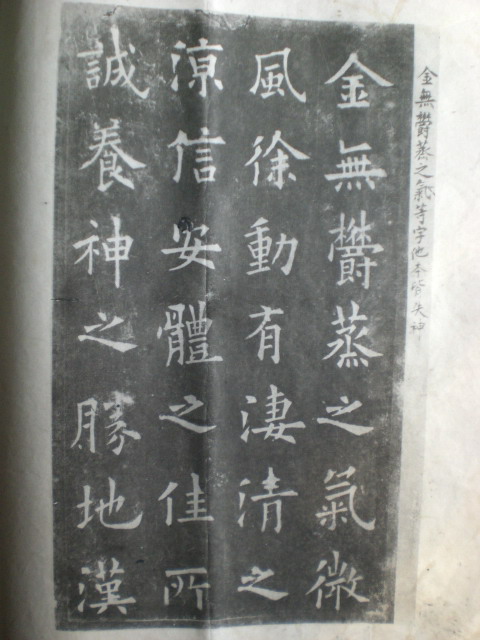 金無鬱蒸之氣等字他本皆失神
金無鬱蒸之氣微
風徐動有淒清之
涼信安體之佳所
誠養神之勝地漢